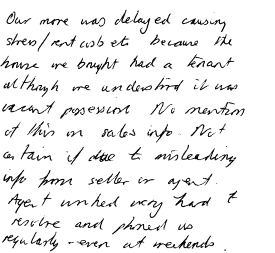 Our move was delayed causing
stress/rent costs etc because the
house we bought had a tenant
although we understood it was
vacant possession No mention
of this in sales info. Not
certain if due to misleading
info from seller or agent.
Agent worked very hard to
resolve and phoned us
regularly - even at weekends.